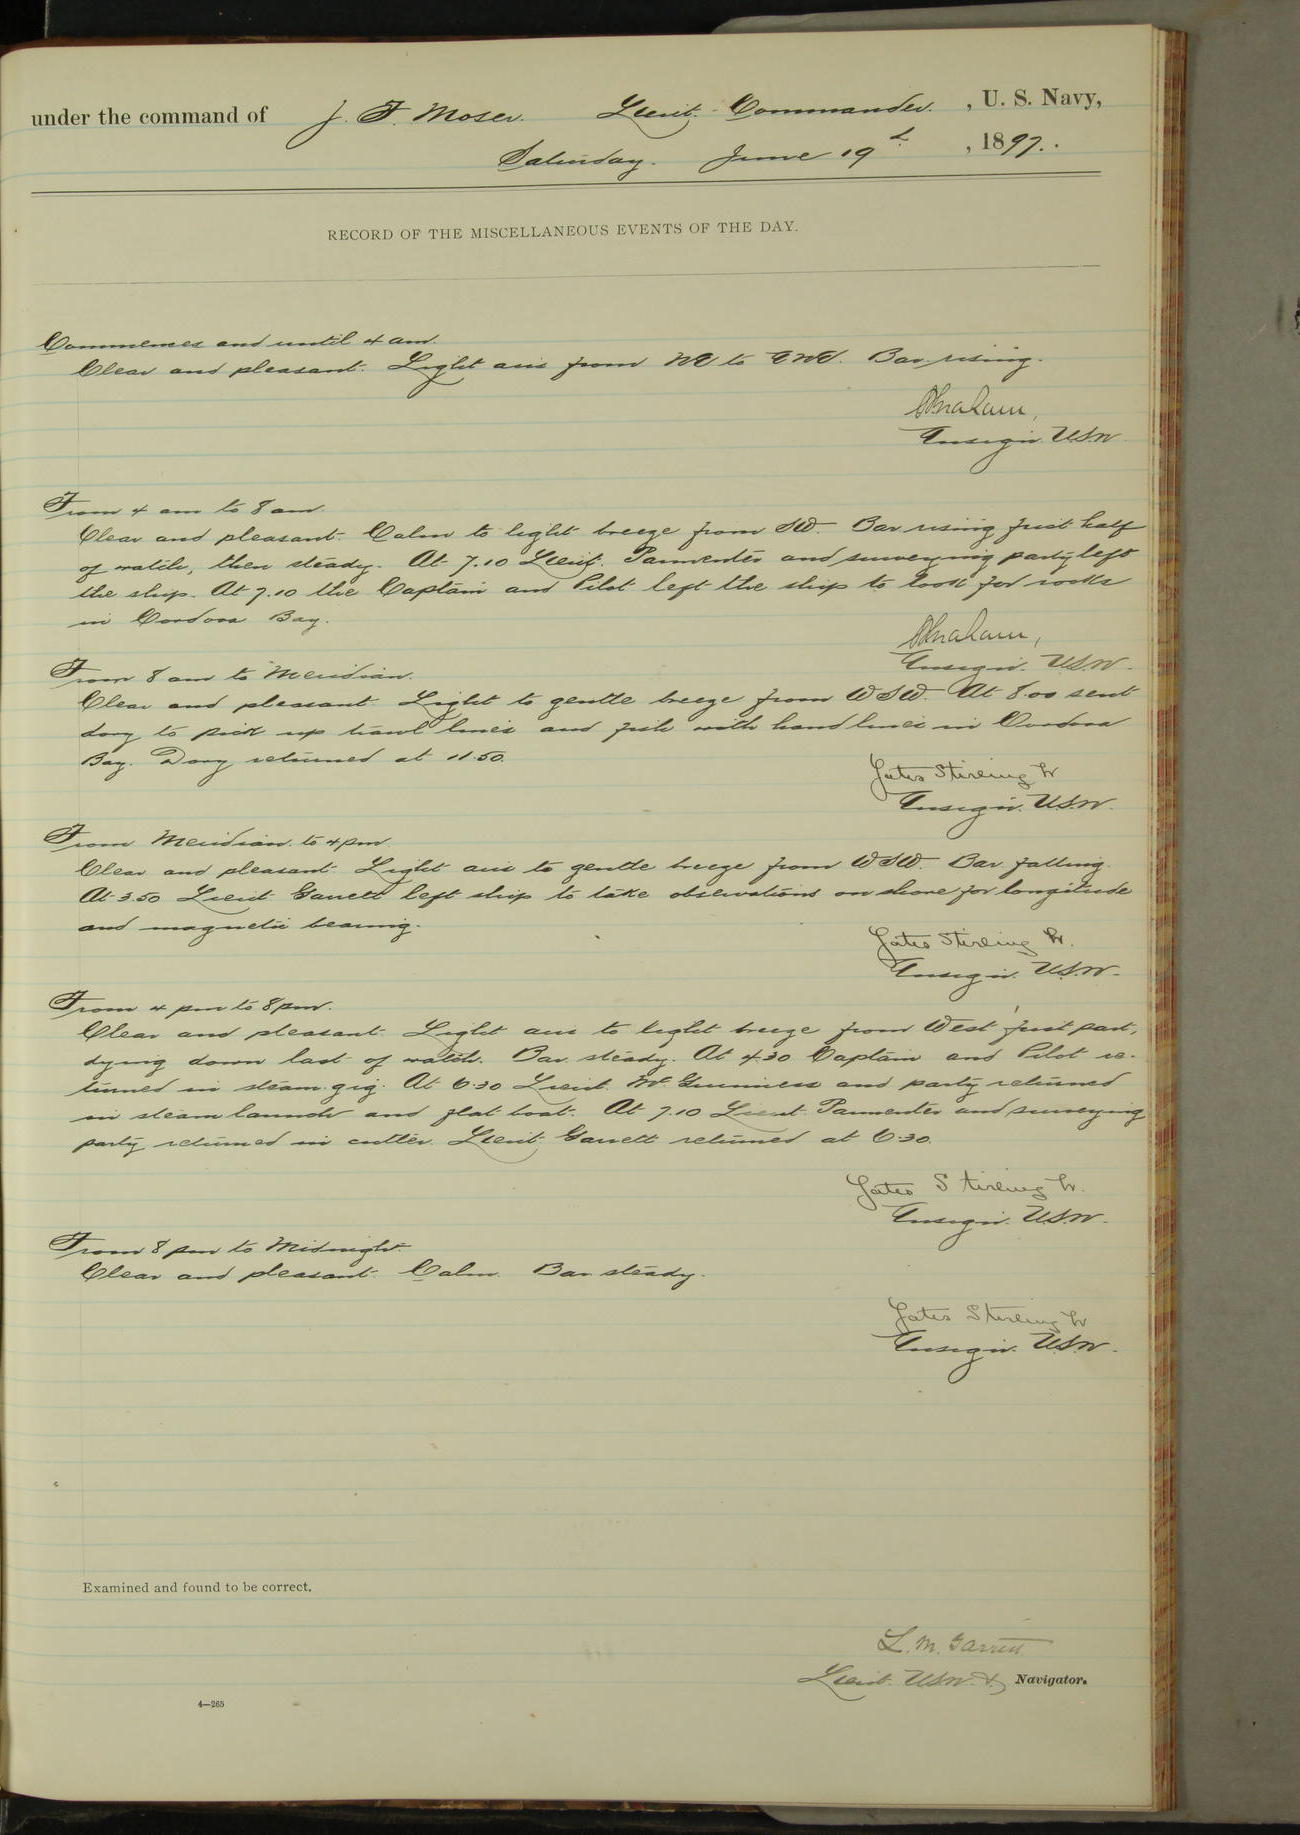 under the command of J. F. Moser. Lieut. Commander. , U. S. Navy,
Saturday. June 19th , 1897.
RECORD OF THE MISCELLANEOUS EVENTS OF THE DAY.
Commences and until 4 am.
Clear and pleasant. Light airs from NE to ENE. Bar rising.
Ensign. U.S.N.
From 4 am to 8 am.
Clear and pleasant. Calm to light breeze from SW. Bar rising first half
of watch, then steady. At 7.10 Lieut. Parmenter and surveying party left
the ship. At 7.10 the Captain and Pilot left the ship to look for rocks
in Cordova Bay.
Ensign. U.S.N.
From 8 am to Meridian.
Clear and pleasant. Light to gentle breeze from WSW. At 8.00 sent
dory to pick up trawl lines and fish with hand lines in Cordova
Bay. Dory returned at 11.50.
Yates Stirling Jr
Ensign. U.S.N.
From Meridian. to 4 pm.
Clear and pleasant. Light airs to gentle breeze from WSW. Bar falling.
At 3.50 Lieut Garrett left ship to take observations on shore for longitude
and magnetic bearing.
Yates Stirling Jr.
Ensign. U.S.N.
From 4 pm to 8 pm.
Clear and pleasant. Light airs to light breeze from West first part,
dying down last of watch. Bar steady. At 4.30 Captain and Pilot re-
turned in steam gig. At 6.30 Lieut. McGuinness and party returned
in steam launch and flat boat. At 7.10 Lieut. Parmenter and surveying
party returned in cutter. Lieut. Garrett returned at 6.30.
Yates Stirling Jr.
Ensign. U.S.N.
From 8 pm to Midnight.
Clear and pleasant. Calm. Bar steady.
Yates Stirling Jr
Ensign. U.S.N.
Examined and found to be correct.
L. M. Garrett
Lieut. U.S.N. & Navigator.
4—265